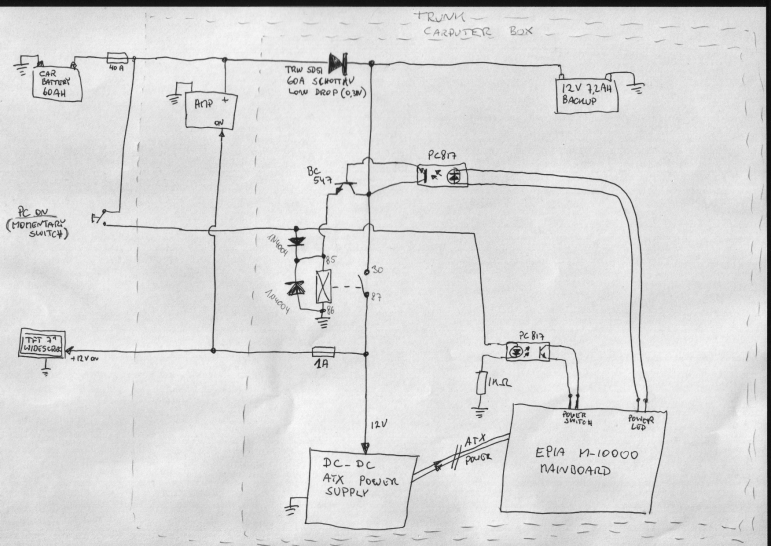 TRUNK
CARPUTER BOX
40A
CAR
BATTERY
60AH
AMP +
ON
60A SCHOTTKY
LOW DROP (0,3V)
12V 7,2AH
BACKUP
BC
547
PC817
PC ON
(MOMENTARY
SWITCH)
1N4004
85
30
1N4004
87
86
TFT 7"
WIDESCR.
+12V ON
1A
PC817
1KΩ
12V
POWER
SWITCH
POWER
LED
ATX
POWER
EPIA M-10000
MAINBOARD
DC-DC
ATX POWER
SUPPLY